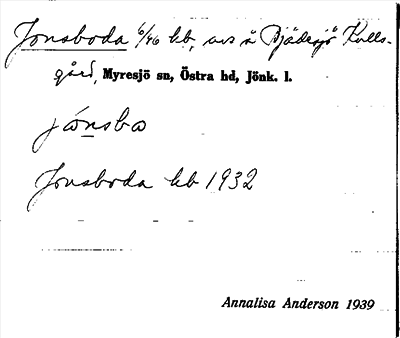 Jonsboda 6/46 hb, avs å Bjädesjö Kulls-
gård, Myresjö sn, Östra hd, Jönk. l.
jónsba
Jonsboda hb 1932
Annalisa Anderson 1939